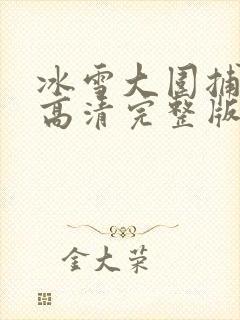 冰雪大围捕
高清完整版
金大荣